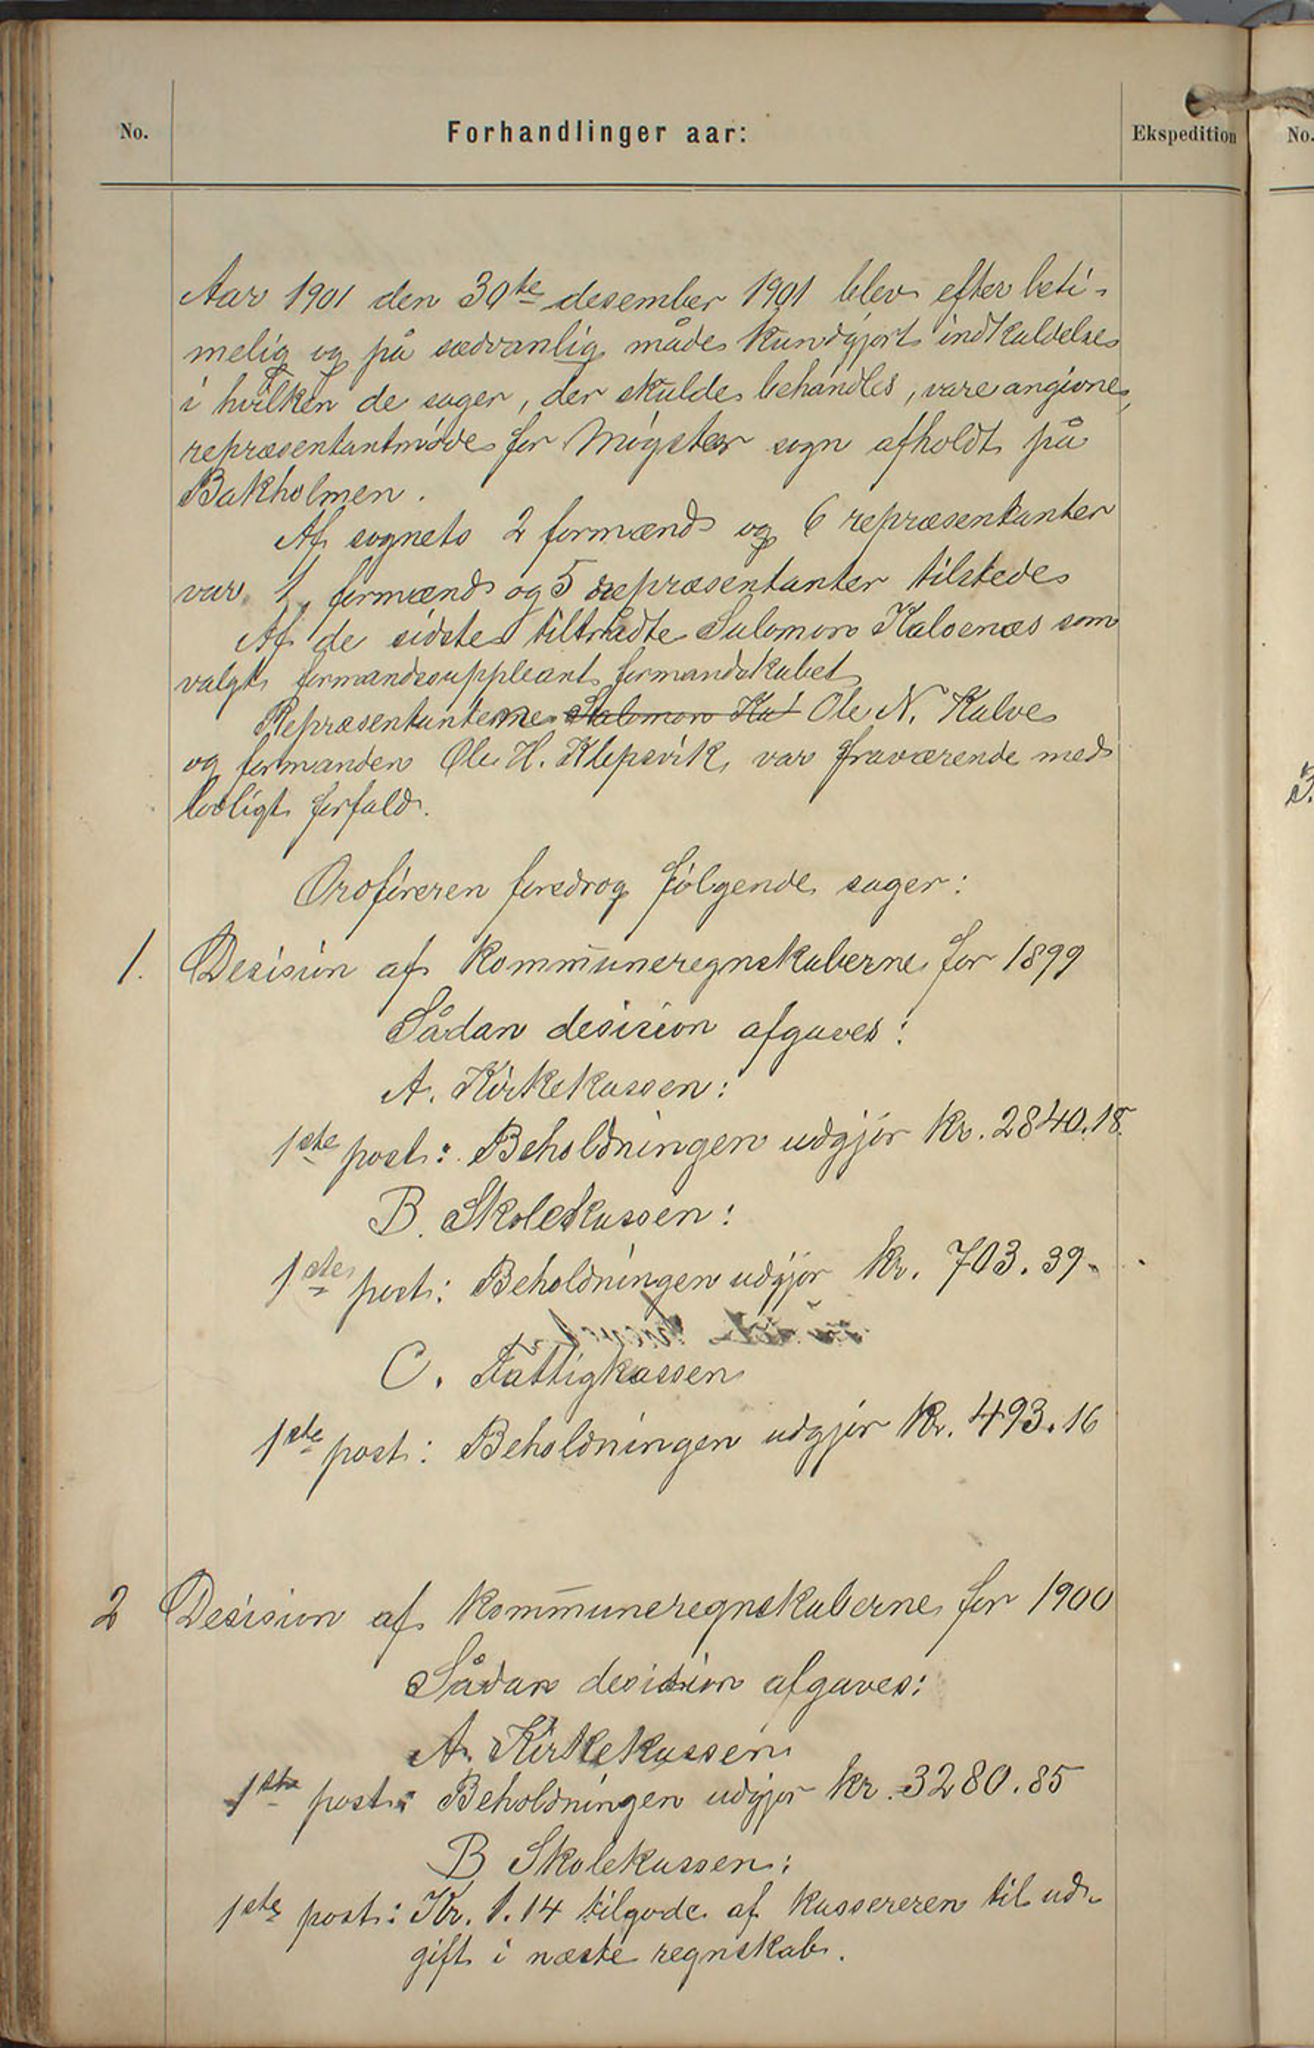 No.
Forhandlinger aar:
Ekspedition
No.
Aar 1901 den 30te desember 1901 blev efter beti-
melig og på sædvanlig måde kundgjort indkaldelse
i hvilken de sager, der skulde behandles, vare angivne,
repræsentantmøde for Møgster sogn afholdt på
Bakholmen.
Af sognets 2 formænd og 6 repræsentanter
var 1 formænd og 5 repræsentanter tilstede
Af de sidste tiltrådte Salomon Kalvenæs som
valgt formandssuppleant formandskabet
Repræsentanterne Salomon Kal Ole N. Kalve
og formanden Ole H. Klepsvik, var fraværende med
lovligt forfald.
Ordføreren foredrog følgende sager:
1. Desisiun af kommuneregnskaberne for 1899
Sådan desision afgaves:
A. Kirkekassen:
1ste post: Beholdningen udgjør kr. 2840.18.
B. Skolekassen:
1ste post: Beholdningen udgjør kr. 703.39.
C. Fattigkassen
1ste post: Beholdningen udgjør kr. 493.16
2 Desisiun af kommuneregnskaberne for 1900
Sådan desision afgaves:
A. Kirkekassen
1ste post: Beholdningen udgjør kr. 3280.85
B Skolekassen:
1ste post: Kr. 1.14 tilgode af kassereren til ud-
gift i næste regnskab.